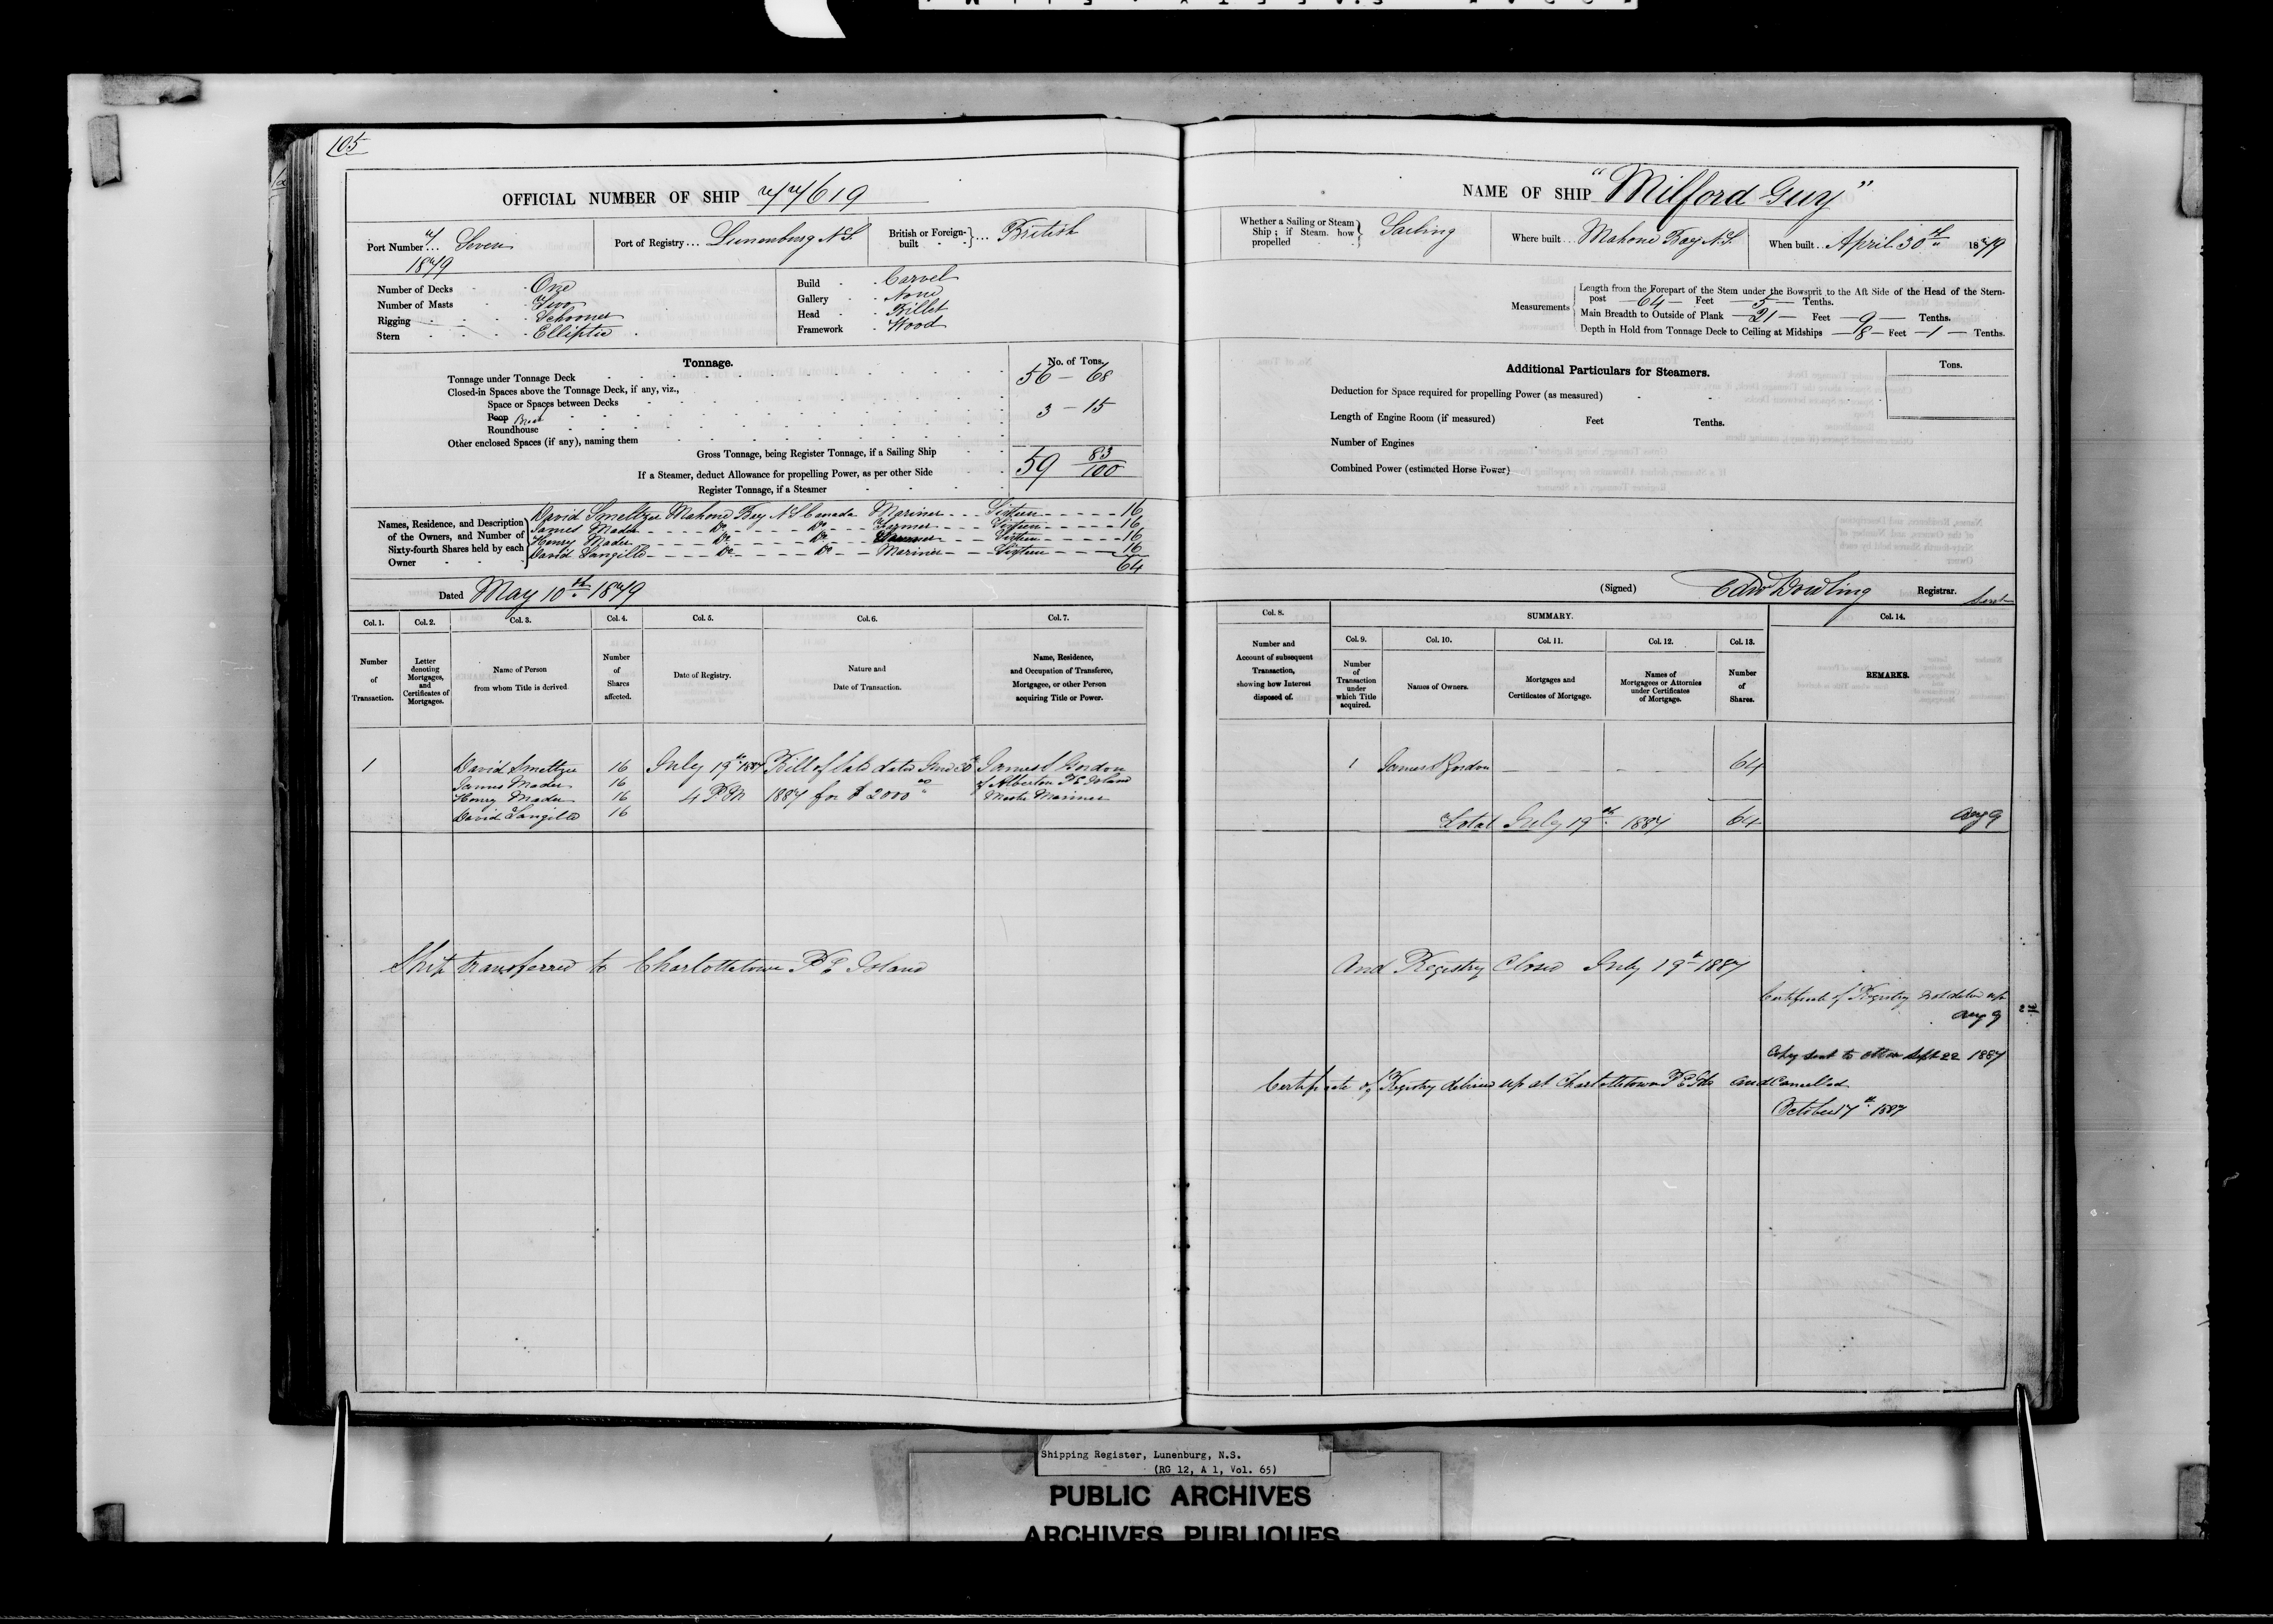 105
OFFICIAL NUMBER OF SHIP 77619
Port Number 7 Seven
1879
Port of Registry... Lunenburg N.S.
British or Foreign-built ... British
Number of Decks One
Number of Masts Two
Rigging Schooner
Stern Elliptic
Build Carvel
Gallery None
Head Billet
Framework Wood
Tonnage. No. of Tons.
Tonnage under Tonnage Deck 56 - 68
Closed-in Spaces above the Tonnage Deck, if any, viz.,
Space or Spaces between Decks
Poop 3 - 15
Roundhouse
Other enclosed Spaces (if any), naming them
Gross Tonnage, being Register Tonnage, if a Sailing Ship 59 83/100
If a Steamer, deduct Allowance for propelling Power, as per other Side
Register Tonnage, if a Steamer
Names, Residence, and Description of the Owners, and Number of Sixty-fourth Shares held by each Owner
David Smeltzer Mahone Bay N S Canada Mariner Sixteen 16
James Mader Do Do Farmer Sixteen 16
Henry Mader Do Do Sixteen 16
David Langille Do Do Mariner Sixteen 16
64
Dated May 10th 1879
Col. 1. Col. 2. Col. 3. Col. 4. Col. 5. Col. 6. Col. 7.
Number of Transaction.
Letter denoting Mortgages, and Certificates of Mortgages.
Name of Person from whom Title is derived
Number of Shares affected.
Date of Registry.
Nature and Date of Transaction.
Name, Residence, and Occupation of Transferee, Mortgagee, or other Person acquiring Title or Power.
1 David Smeltzer 16 July 19th 1887 Bill of Sale dated June 30th James Gordon
James Mader 16 of Alberton P E Island
Henry Mader 16 4 P.M 1887 for $2000 Master Mariner
David Langille 16
Ship transferred to Charlottetown P E Island
NAME OF SHIP "Milford Guy"
Whether a Sailing or Steam Ship; if Steam, how propelled Sailing
Where built... Mahone Bay N.S.
When built.. April 30th 1879
Measurements
Length from the Forepart of the Stem under the Bowsprit to the Aft Side of the Head of the Stern-
post 64 Feet 5 Tenths.
Main Breadth to Outside of Plank 21 Feet 9 Tenths.
Depth in Hold from Tonnage Deck to Ceiling at Midships 8 Feet 1 Tenths.
Additional Particulars for Steamers. Tons.
Deduction for Space required for propelling Power (as measured)
Length of Engine Room (if measured) Feet Tenths.
Number of Engines
Combined Power (estimated Horse Power)
(Signed) Edw Dowling Registrar.
Col. 8. SUMMARY. Col. 14.
Col. 9. Col. 10. Col. 11. Col. 12. Col. 13.
Number and Account of subsequent Transaction, showing how Interest disposed of.
Number of Transaction under which Title acquired.
Names of Owners.
Mortgages and Certificates of Mortgage.
Names of Mortgagees or Attornies under Certificates of Mortgage.
Number of Shares.
REMARKS.
1 James Gordon 64
Total July 19th 1887 64 Aug 9
And Registry Closed July 19th 1887
Certificate of Registry not delivered up
Aug 9
Copy sent to Ottawa Sept 22 1887
Certificate of Registry delivered up at Charlottetown P E Isld and Cancelled
October 17th 1887
Shipping Register, Lunenburg, N.S.
(RG 12, A 1, Vol. 65)
PUBLIC ARCHIVES
ARCHIVES PUBLIQUES